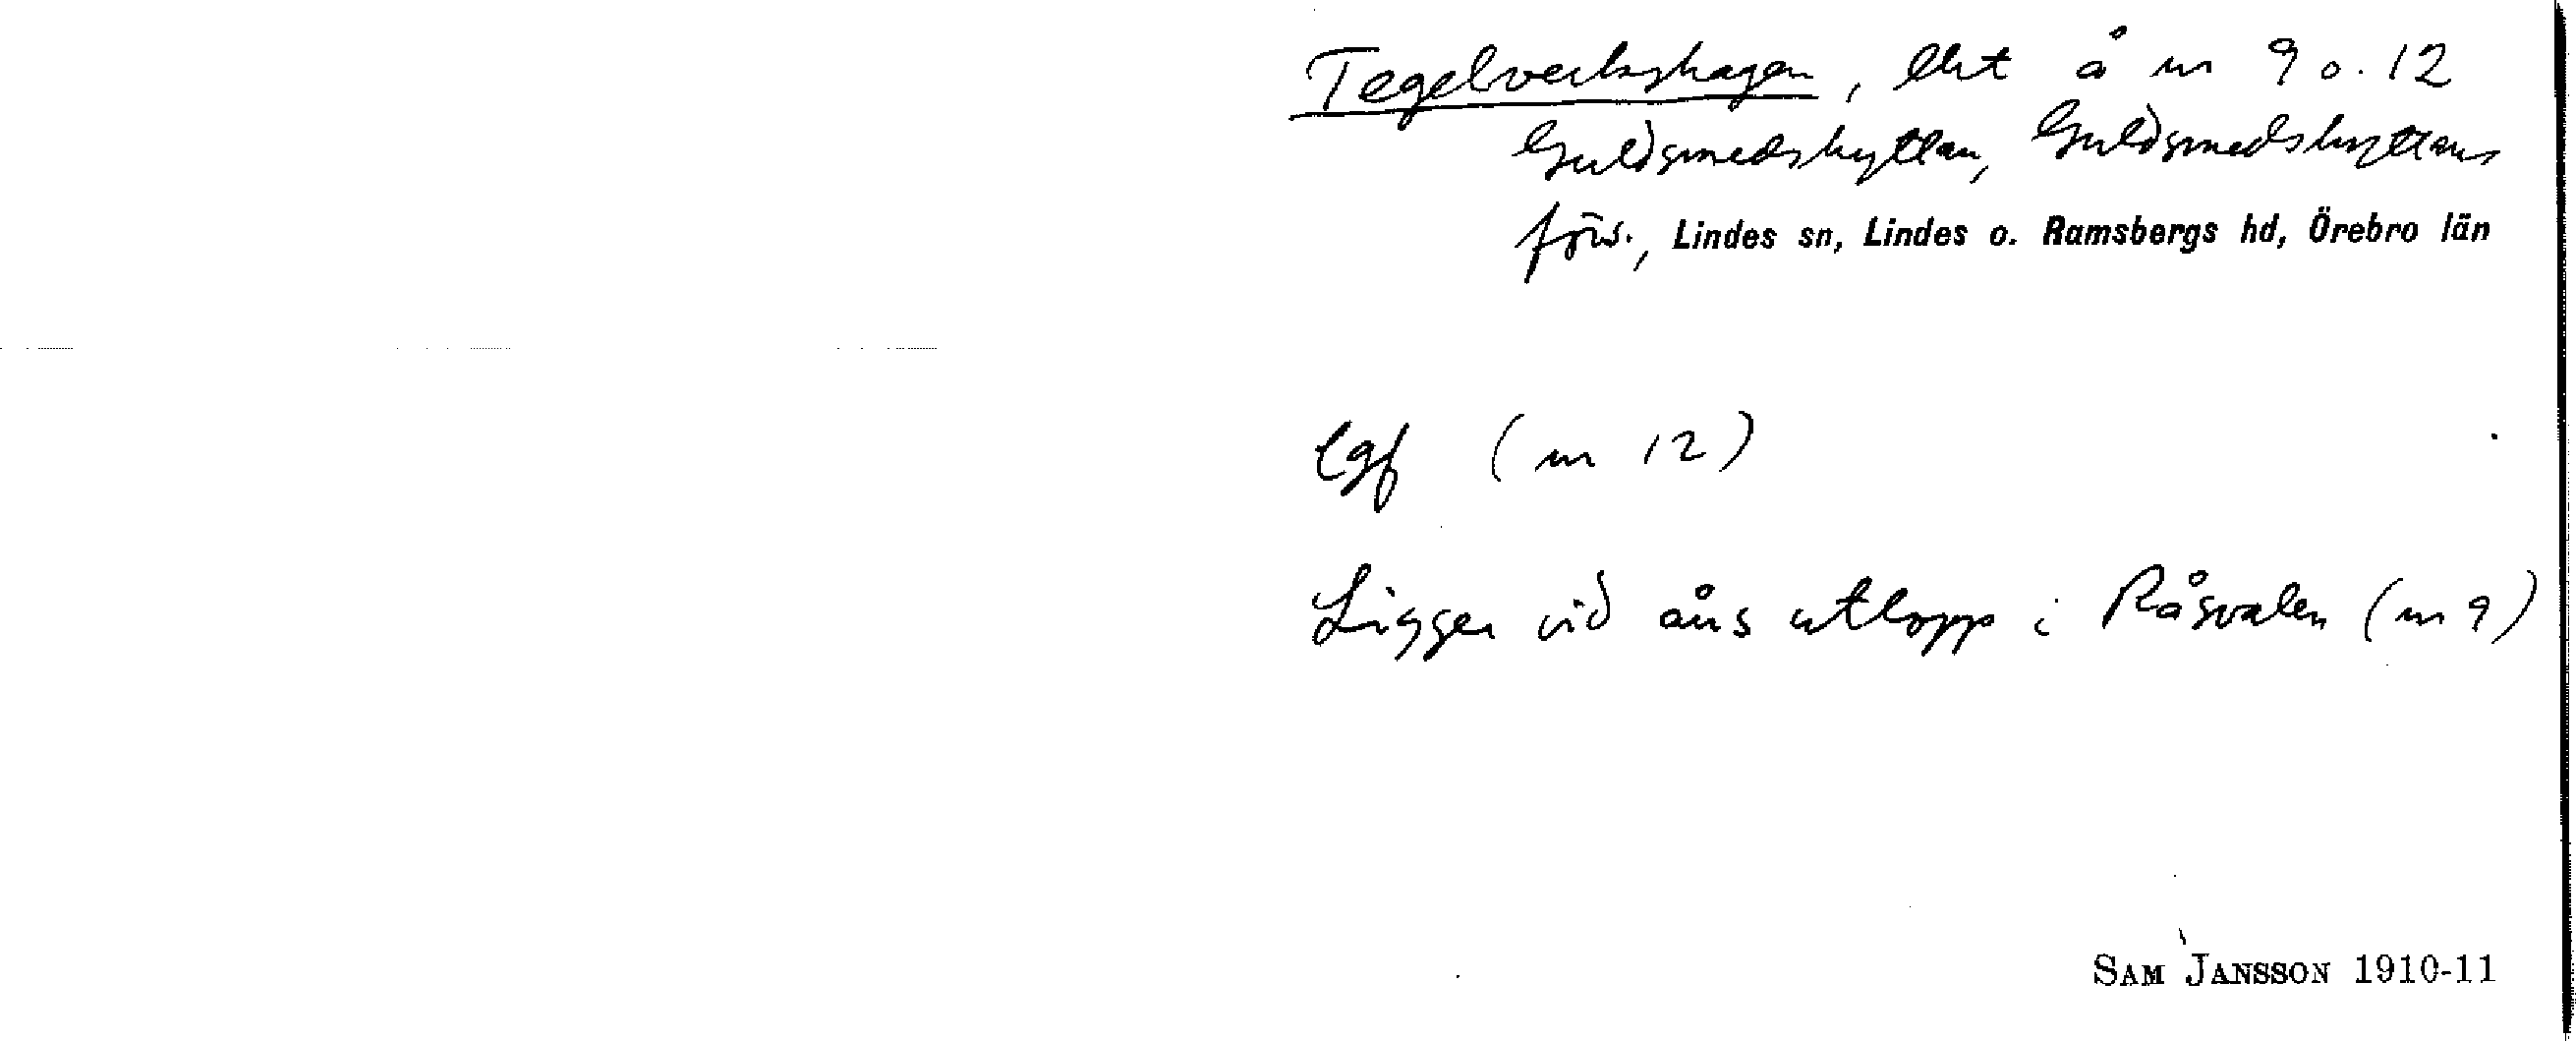 Tegelverkshagen, lht å nr 9 o. 12
Guldsmedshyttan, Guldsmedshyttans
förs., Lindes sn, Lindes o. Ramsbergs hd, Örebro län
lgf (nr 12)
Ligger vid åns utlopp i Råsvalen (nr 9)
SAM JANSSON 1910-11